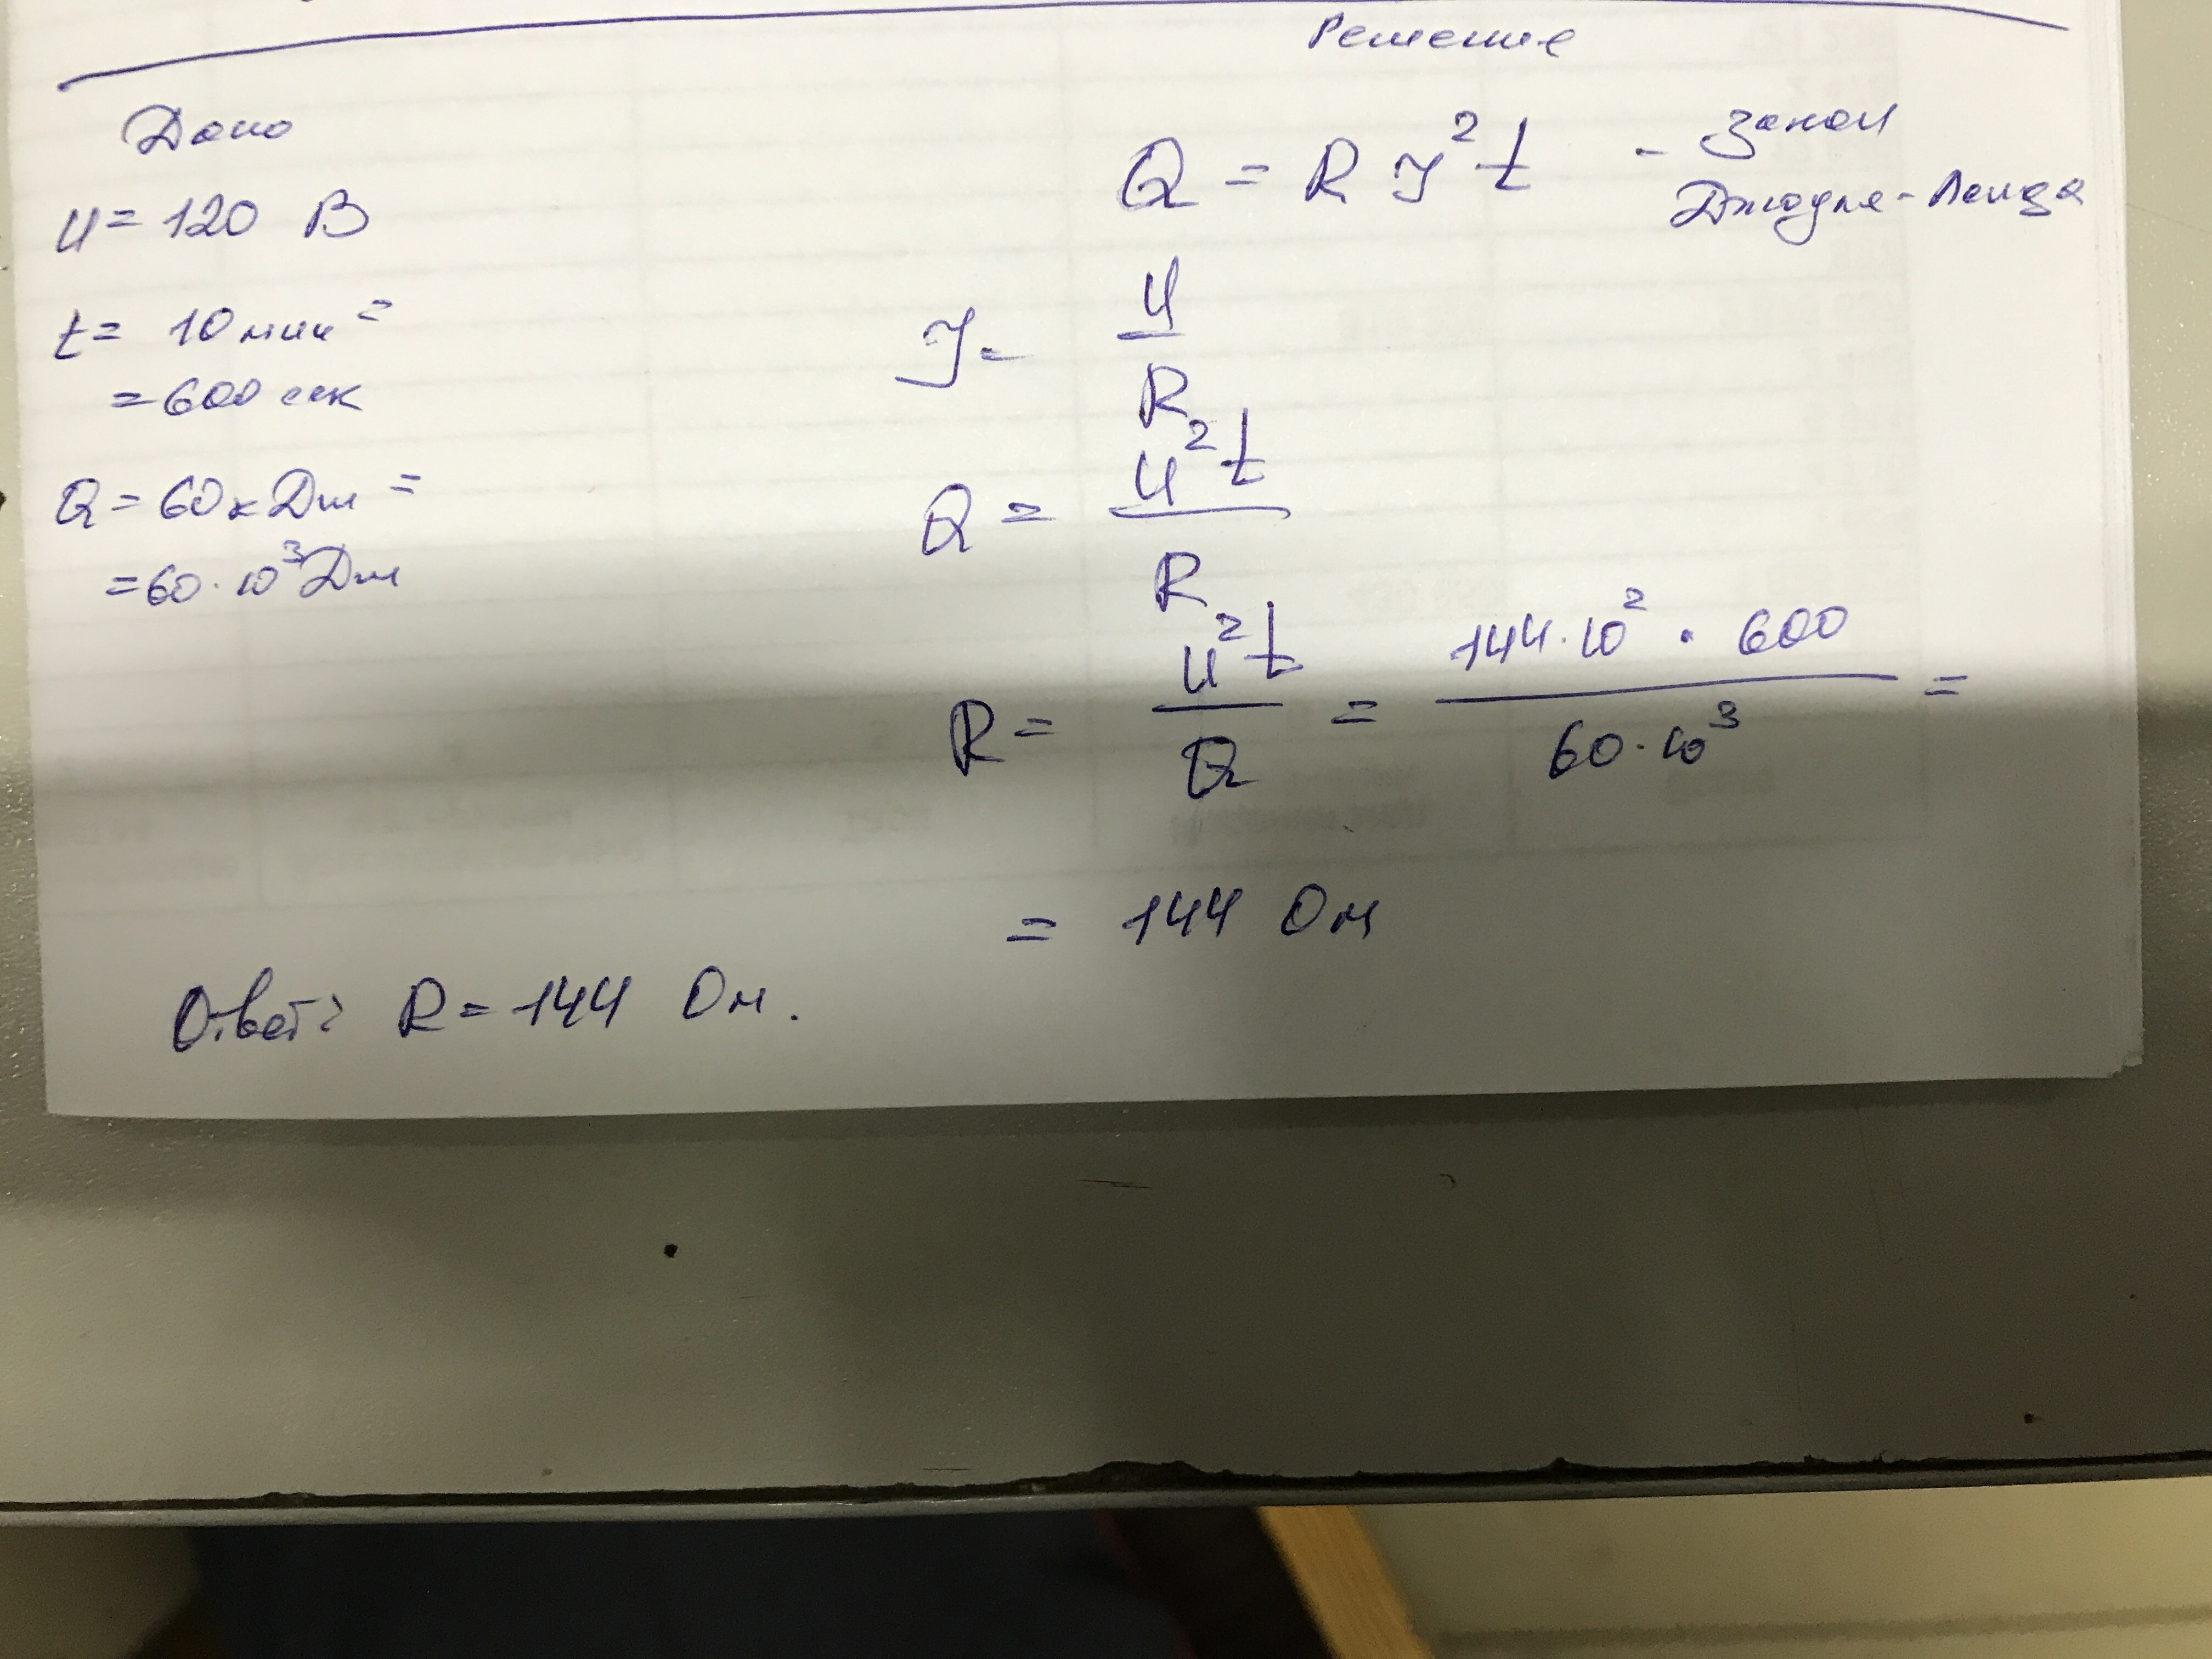 Решение
Дано
U = 120 В
t = 10 мин =
= 600 сек
Q = 60 кДж =
= 60 · 10³ Дж
Q = R I² t - Закон
Джоуля-Ленца
I = U / R
Q = U² t / R
R = U² t / Q = 144 · 10² · 600 / 60 · 10³ =
= 144 Ом
Ответ: R = 144 Ом.